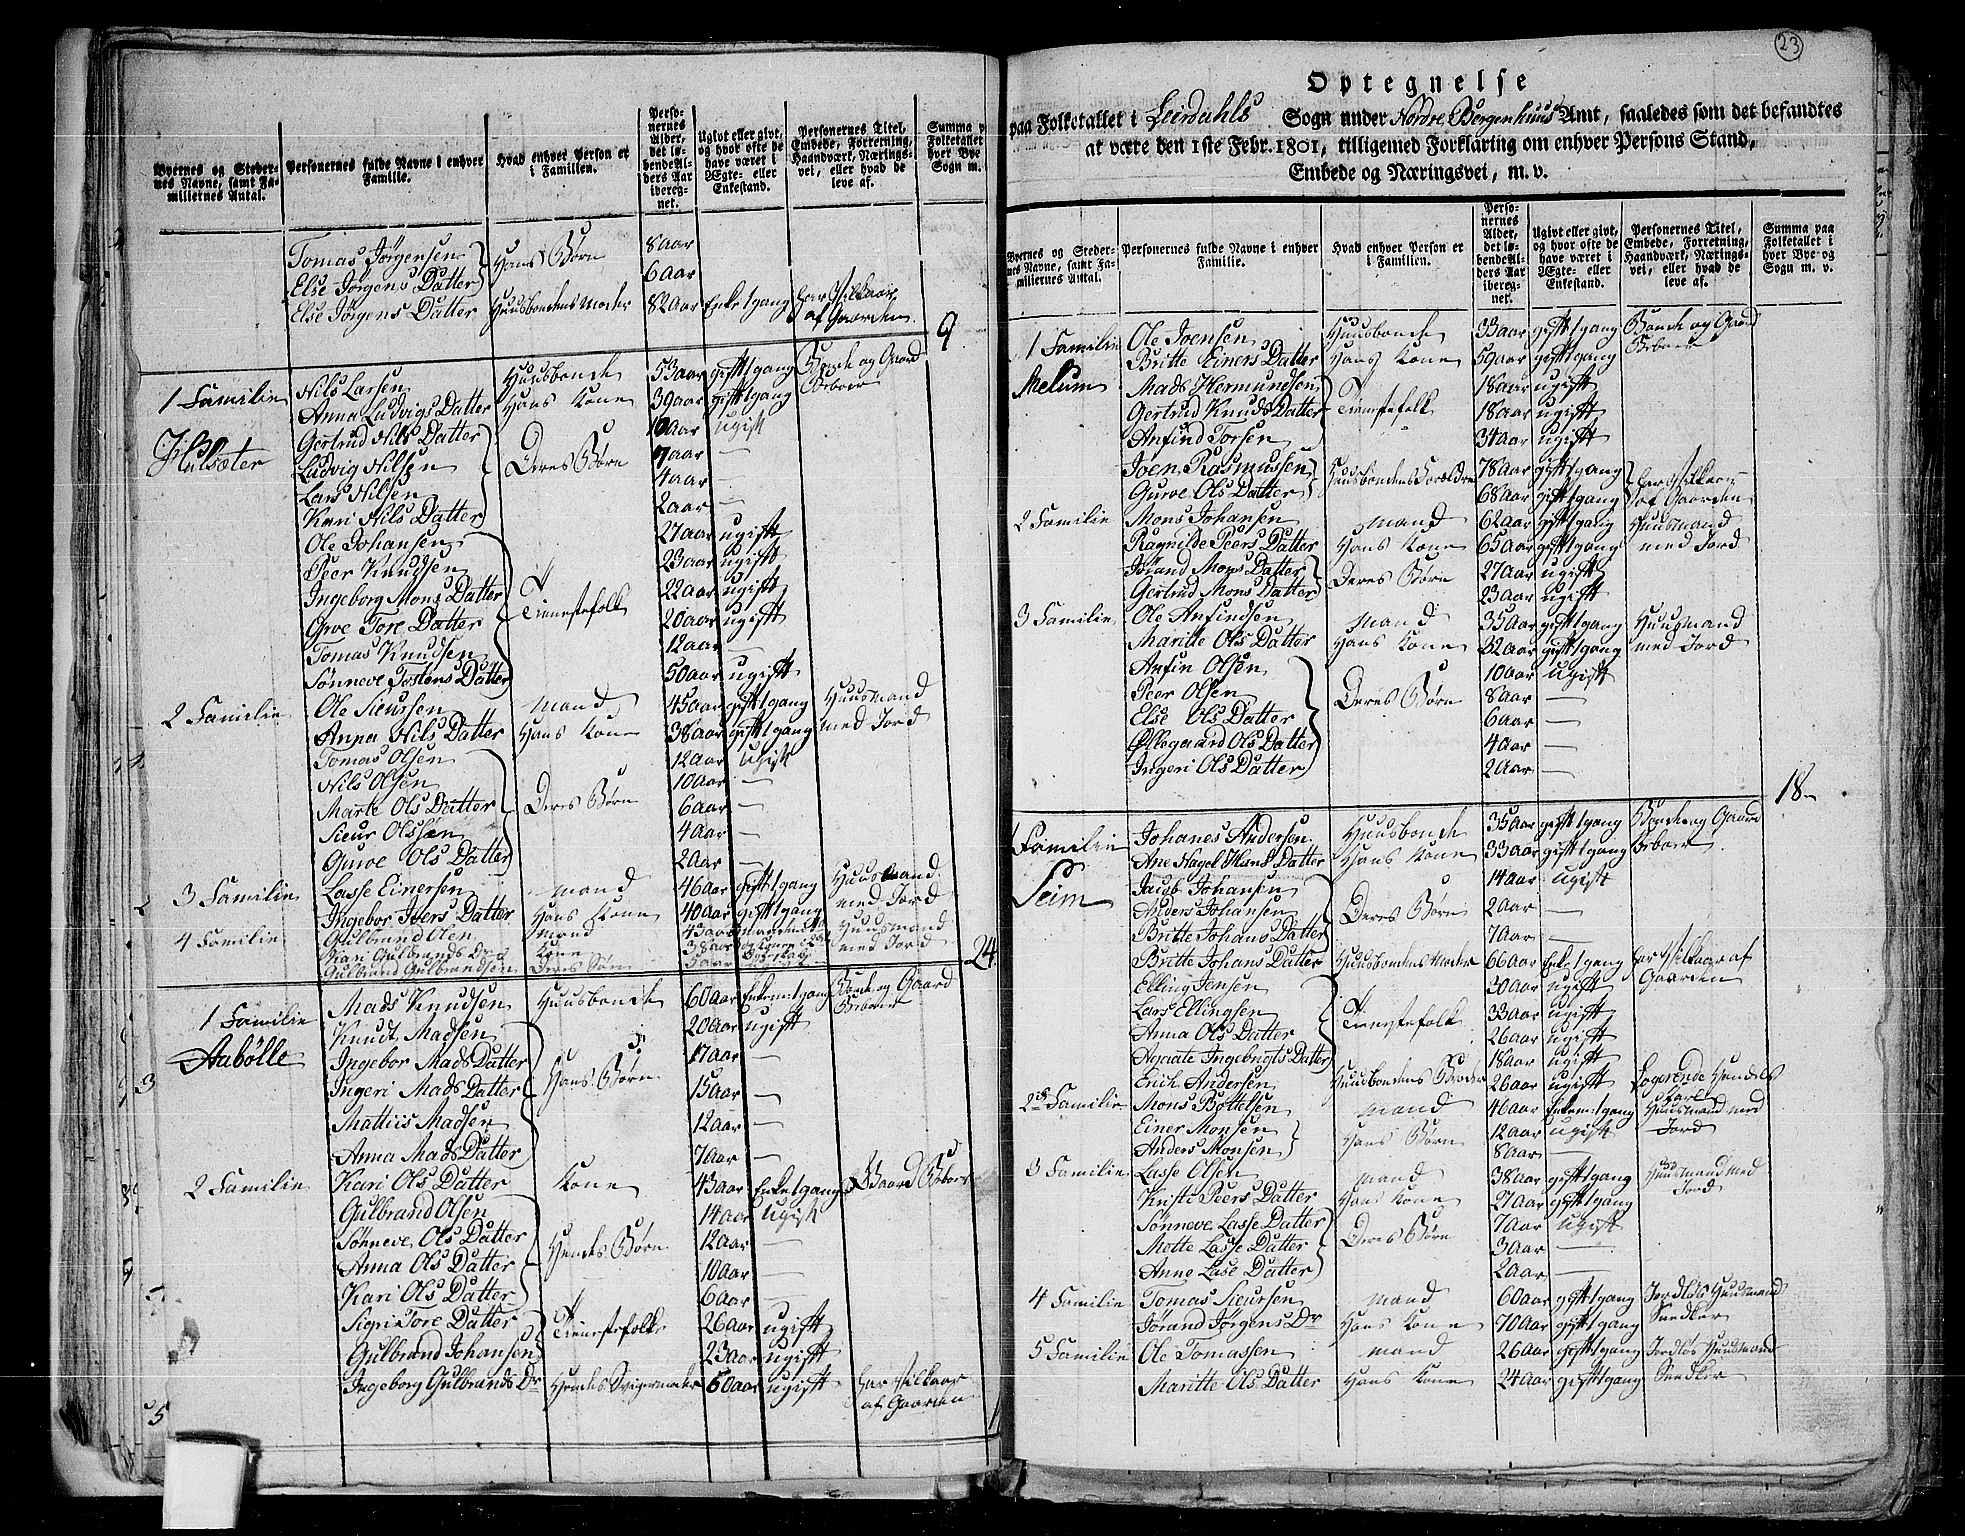 Byernes og Steder-
nes Navne, samt Fa-
miliernes Antal.
Personernes fulde Navne i enhver
Familie.
Hvad enhver Person er
i Familien.
Perso-
nernes
Alder,
det lø-
bende Al-
ders Aar
ibereg-
net.
Ugivt eller givt,
og hvor ofte de
have været i
Ægte- eller
Enkestand.
Personernes Titel,
Embede, Forretning,
Haandværk, Nærings-
vei, eller hvad de
leve af.
Summa p
Folketallet
hver Bye
Sogn m.
Tomas Jörgensen Hans Börn 8 Aar
Else Jörgens Datter 6 Aar
Else Jörgens Datter Huusbondens Moder 82 Aar Enke 1 gang har Vilkaar af Gaarden
9
1 Familie Nils Larsen Huusbonde 53 Aar gift 1 gang Bonde og Gaard Beboer
Anna Ludvigs Datter Hans Kone 39 Aar gift 1 gang
Gertrud Nils Datter 10 Aar ugift
Ludvig Nilsen Deres Börn 7 Aar —
Lars Nilsen 4 Aar —
Kari Nils Datter 2 Aar —
Ole Johansen 27 Aar ugift
Peer Knudsen 23 Aar ugift
Ingeborg Mons Datter Tienestefolk 22 Aar ugift
Gurve Tore Datter 20 Aar ugift
Tomas Knudsen 12 Aar —
Sönneve Tostens Datter 50 Aar ugift
2 Familie Ole Sieursen Mand 45 Aar gift 1 gang Huusmand med Jord
Anna Nils Datter Hans Kone 38 Aar gift 1 gang
Tomas Olsen 12 Aar ugift
Nils Olsen 10 Aar —
Marte Ols Datter Deres Börn 6 Aar —
Sieur Olssen 4 Aar —
Gurve Ols Datter 2 Aar —
3 Familie Lasse Einersen Mand 46 Aar gift 1 gang Huusmand med Jord
Ingebor Ivers Datter Hans Kone 40 Aar gift 1 gang
4 Familie Gulbrand Olen Mand 43 Aar Huusmand med Jord
Kari Gulbrands Dr Kone 38 Aar
Gulbrand Gulbrandsen Deres Sön 5 Aar
24
1 Familie Mads Knudsen Huusbonde 60 Aar Enkem: 1 gang Bonde og Gaard Beboer
Aabölle
Knudt Madsen 20 Aar ugift
Ingebor Mads Datter 17 Aar —
Ingeri Mads Datter Hans Börn 15 Aar —
Mattiis Madsen 12 Aar —
Anna Mads Datter 7 Aar —
2 Familie Kari Ols Datter Kone 43 Aar Enke 1 gang Gaard Beboer
Gulbrand Olsen 14 Aar ugift
Sönneve Ols Datter Hendes Börn 12 Aar —
Anna Ols Datter 10 Aar —
Kari Ols Datter 6 Aar —
Sigri Tore Datter Tienestefolk 26 Aar ugift
Gulbrand Johansen 23 Aar ugift
Ingeborg Gulbrands Dr Hendes Svigermoder 60 Aar ugift har Vilkaar af Gaarden
23
Optegnelse
paa Folketallet i Leirdahls Sogn under Nordre Bergenhuus Amt, saaledes som det befandtes
at være den 1ste Febr. 1801, tilligemed Forklaring om enhver Persons Stand,
Embede og Næringsvei, m. v.
Byernes og Steder-
nes Navne, samt Fa-
miliernes Antal.
Personernes fulde Navne i enhver
Familie.
Hvad enhver Person er
i Familien.
Perso-
nernes
Alder,
det lø-
bende Al-
ders Aar
ibereg-
net.
Ugivt eller givt,
og hvor ofte de
have været i
Ægte- eller
Enkestand.
Personernes Titel,
Embede, Forretning,
Haandværk, Nærings-
vei, eller hvad de
leve af.
Summa paa
Folketallet i
hver Bye og
Sogn m. v.
1 Familie Ole Joensen Huusbonde 33 Aar gift 1 gang Bonde og Gaard Beboer
Britte Einers Datter Hans Kone 59 Aar gift 1 gang
Melum Mads Hermundsen 18 Aar ugift
Gertrud Knuds Datter Tienestefolk 18 Aar ugift
Anfind Torsen 34 Aar ugift
Joen Rasmussen Huusbondens Foreldre 78 Aar gift 1 gang har Vilkaar af Gaarden
Gurve Ols Datter 68 Aar gift 1 gang
2 Familie Mons Johansen Mand 62 Aar gift 1 gang Huusmand med Jord
Ragnilde Peers Datter Hans Kone 65 Aar gift 1 gang
Jörand Mons Datter Deres Börn 27 Aar ugift
Gertrud Mons Datter 23 Aar ugift
3 Familie Ole Anfindsen Mand 35 Aar gift 1 gang Huusmand med Jord
Maritte Ols Datter Hans Kone 32 Aar gift 1 gang
Anfin Olsen 10 Aar ugift
Peer Olsen Deres Börn 8 Aar —
Else Ols Datter 6 Aar —
Øllegaard Ols Datter 4 Aar —
Ingeri Ols Datter 2 Aar —
18
1 Familie Johanes Andersen Huusbonde 35 Aar gift 1 gang Bonde og Gaard Beboer
Ane Nagel Hans Datter Hans Kone 33 Aar gift 1 gang
Seim Jacob Johansen 14 Aar ugift
Anders Johansen Deres Börn 2 Aar —
Britte Johans Datter 7 Aar —
Britte Johans Datter Huusbondens Moder 66 Aar Enke 1 gang har Vilkaar af Gaarden
Elling Jensen 30 Aar ugift
Lars Ellingsen Tienestefolk 33 Aar ugift
Anna Ols Datter 26 Aar ugift
Agaate Ingebrigts Datter 18 Aar ugift
Erich Andersen Huusbondens Broder 26 Aar ugift Logerende Handels Karl
2 Familie Mons Bottelsen Mand 46 Aar Enkem: 1 gang Huusmand med Jord
Einer Monsen Hans Börn 12 Aar ugift
Anders Monsen 8 Aar —
3 Familie Lasse Olsen Mand 38 Aar gift 1 gang Huusmand med Jord
Kristi Peers Datter Hans Kone 27 Aar gift 1 gang
Sönneve Lasse Datter 7 Aar ugift
Motte Lasse Datter Deres Börn 3 Aar —
Anne Lase Datter 2 Aar —
4 Familie Tomas Sieursen Mand 60 Aar gift 1 gang Jordløs Huusmand Snedker
Jörand Jörgens Dr Hans Kone 70 Aar gift 1 gang
5 Familie Ole Tomassen Mand 26 Aar gift 1 gang Jordløs Huusmand Snedker
Maritte Ols Datter Hans Kone 24 Aar gift 1 gang